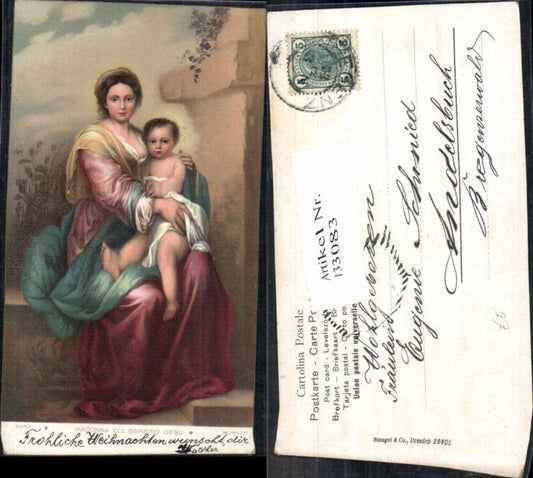 ROMA MADONNA COL BAMBINO GESÙ MURILLO
Fröhliche Weihnachten wünscht dir
Cartolina Postale
Postkarte - Carte Po
Post card - Levelező
Brefkort - Briefkaart - Br
Tarjeta postal - Cart
Union postale universelle
Artikel Nr.
133083
Wohlgeboren
Fräulein
Eugenie Schmied
Andelsbuch
Bregenzerwald
Stengel & Co., Dresden 28805